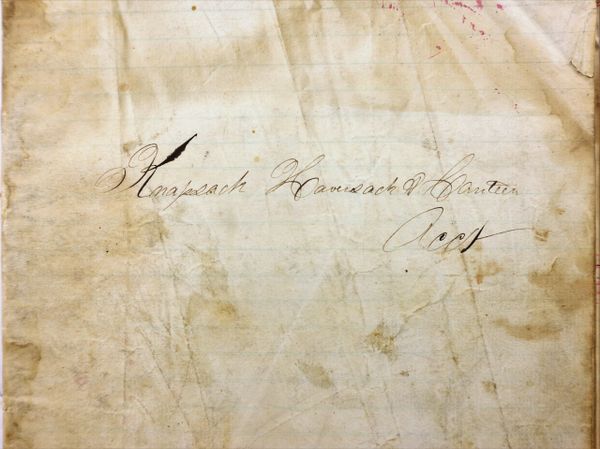 Knapsack Haversack & Canteen
Acct